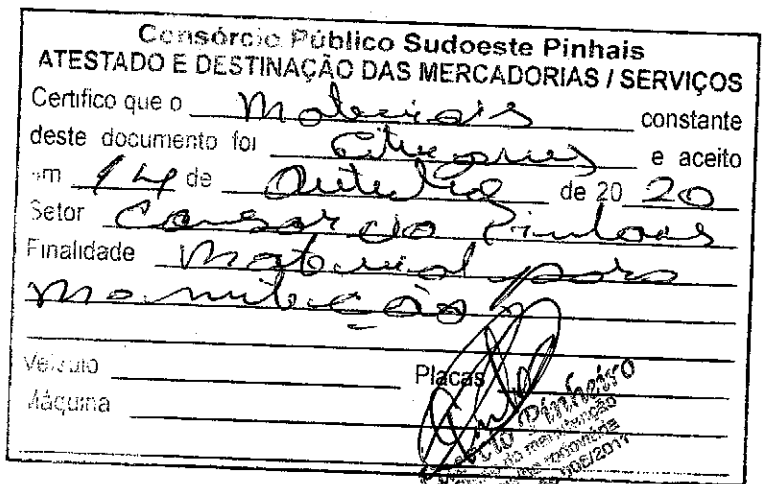 Consórcio Público Sudoeste Pinhais
ATESTADO E DESTINAÇÃO DAS MERCADORIAS / SERVIÇOS
Certifico que o Materiais constante
deste documento foi Entregues e aceito
em 14 de Outubro de 2020
Setor Consorcio Pinhais
Finalidade Material para
Manutenção
Veículo Placas
Máquina
Pinheiro
de manutenção
rodoviária
006/2017